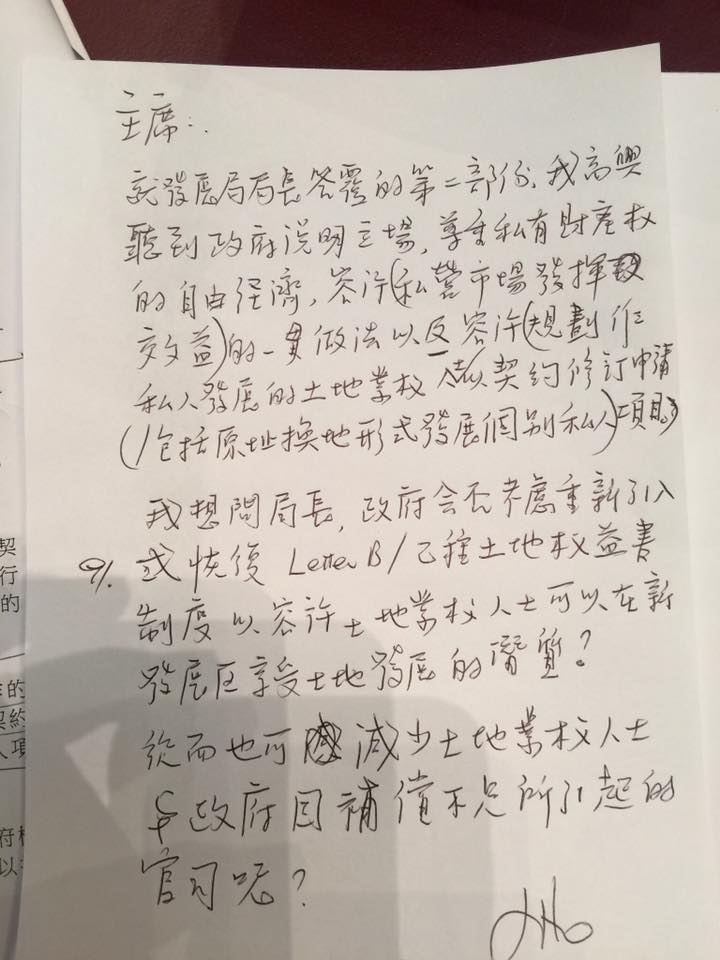 主席：
就發展局局長答覆的第二部份，我高興
聽到政府說明立場，尊重私有財產权
的自由経濟，容許(私營市場發揮
效益)的一貫做法以及容許(規劃作
私人發展的土地業权人以契約修訂申請
(包括原址換地形式發展個別私人)項目)
我想問局長，政府会否考慮重新引入
Q1. 或恢復 Letter B/乙種土地权益書
制度以容許土地業权人士可以在新
發展区享受土地發展的潛質？
從而也可減少土地業权人士
与政府因補償不足所引起的
官司呢？
契
行
的
作的
契約
人項
府
以